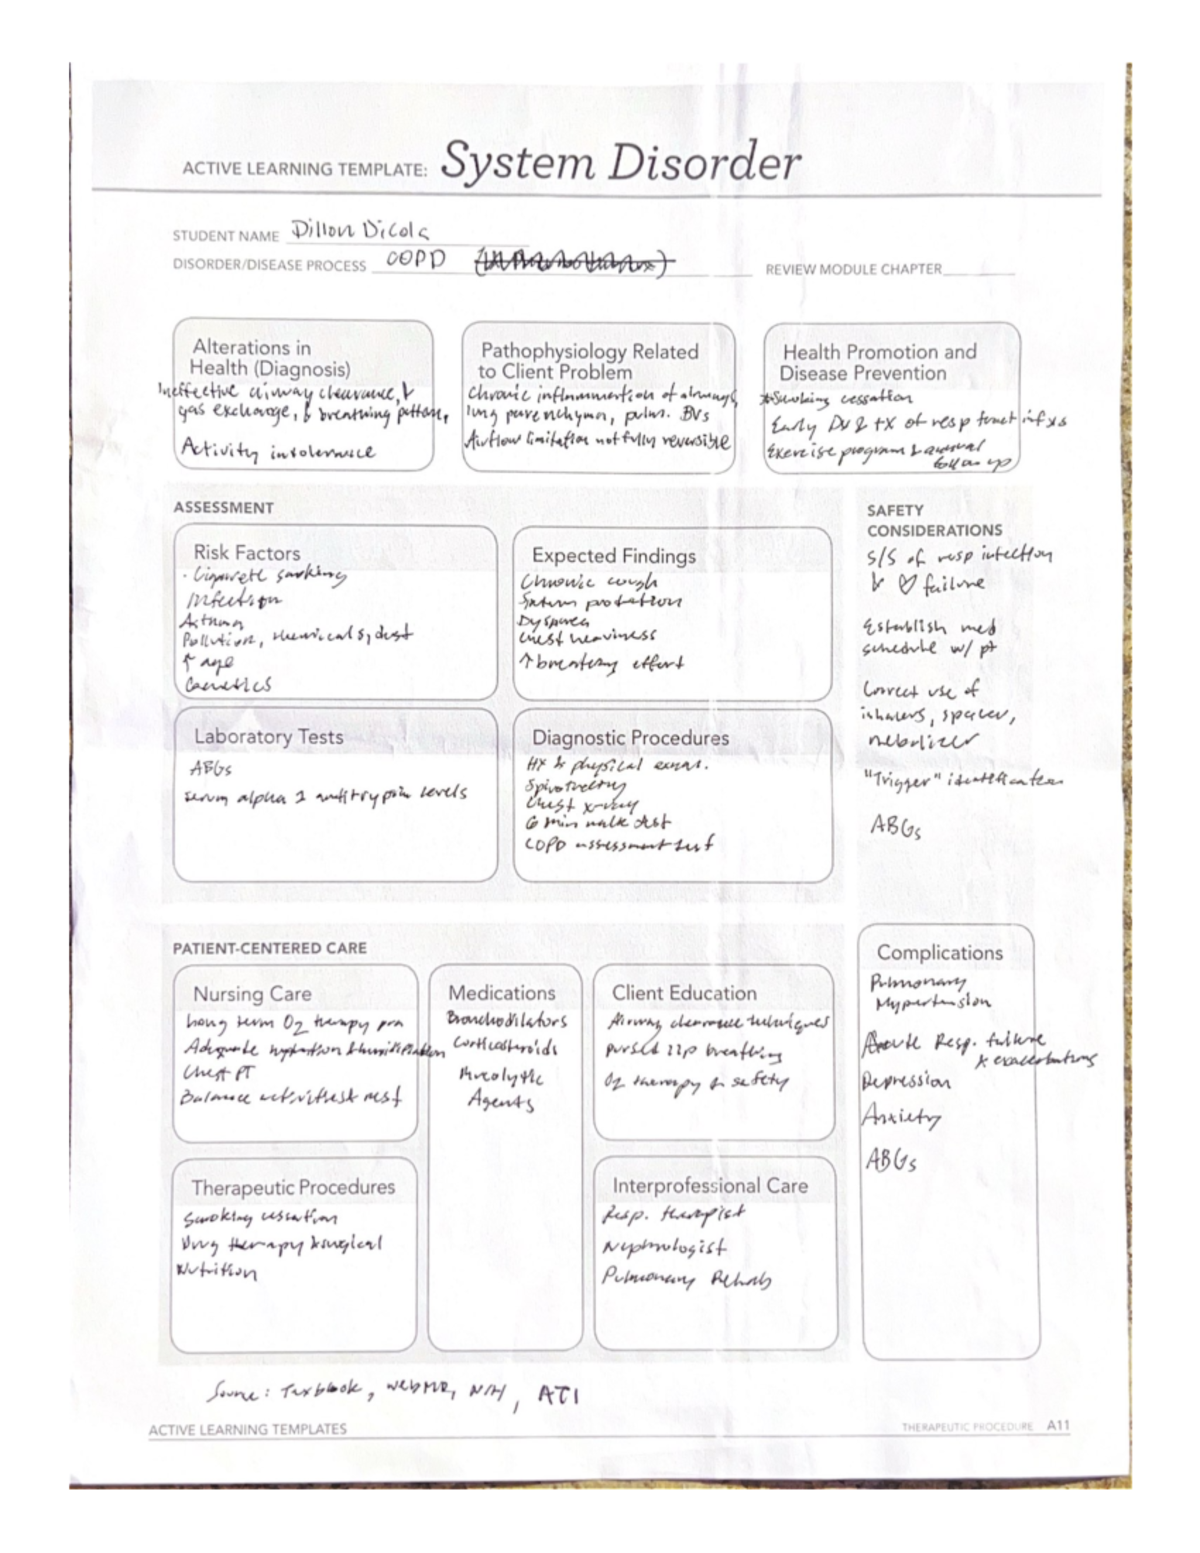 ACTIVE LEARNING TEMPLATE: System Disorder
STUDENT NAME Dillon Dicola
DISORDER/DISEASE PROCESS COPD
REVIEW MODULE CHAPTER
Alterations in
Health (Diagnosis)
Ineffective airway clearance, ↓
gas exchange, & breathing pattern,
Activity intolerance
Pathophysiology Related
to Client Problem
Chronic inflammation of airways,
lung parenchyma, pulm. BVs
Airflow limitation not fully reversible
Health Promotion and
Disease Prevention
*Smoking cessation
Early Dx & tx of resp tract infxs
Exercise program & annual
follow up
ASSESSMENT
Risk Factors
· Cigarette smoking
Infection
Asthma
Pollution, chemicals, dust
↑ age
Genetics
Expected Findings
Chronic cough
Sputum
Dyspnea
Chest heaviness
↑ breathing effort
SAFETY
CONSIDERATIONS
S/S of resp infection
& ♡ failure
Establish med
schedule w/ pt
Correct use of
inhalers, spacer,
nebulizer
"Trigger" identification
ABGs
Laboratory Tests
ABGs
serum alpha 1 antitrypsin levels
Diagnostic Procedures
Hx & physical exam.
Spirometry
Chest x-ray
6 min walk test
COPD assessment test
PATIENT-CENTERED CARE
Nursing Care
Long term O2 therapy prn
Adequate hydration & humidification
Chest PT
Balance activities & rest
Medications
Bronchodilators
Corticosteroids
Mucolytic
Agents
Client Education
Airway clearance techniques
pursed lip breathing
O2 therapy & safety
Complications
Pulmonary
Hypertension
Acute Resp. failure
& exacerbations
Depression
Anxiety
ABGs
Therapeutic Procedures
Smoking cessation
Drug therapy & surgical
Nutrition
Interprofessional Care
Resp. therapist
Nephrologist
Pulmonary Rehab
Source: Textbook, WebMD, NIH, ATI
ACTIVE LEARNING TEMPLATES
THERAPEUTIC PROCEDURE A11